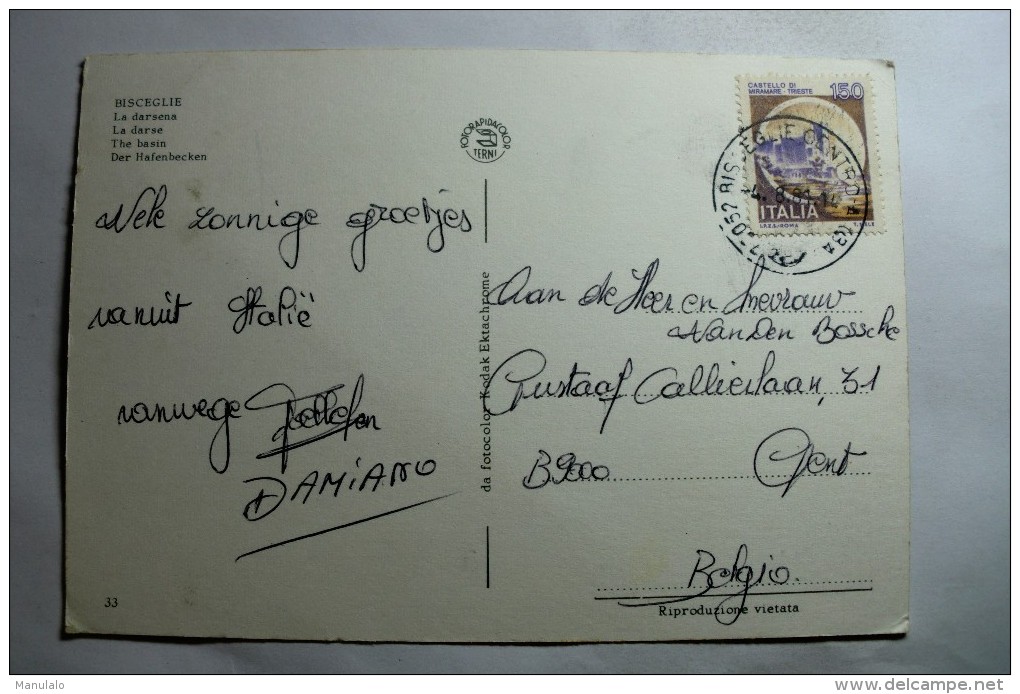 BISCEGLIE
La darsena
La darse
The basin
Der Hafenbecken
FOTORAPIDACOLOR
TERNI
CASTELLO DI
MIRAMARE - TRIESTE
150
ITALIA
I.P.Z.S.-ROMA
BISCEGLIE CENTRO
-4. 8.81-14
Vele zonnige groetjes
vanuit Italië
vanwege
DAMiANO
da fotocolor Kodak Ektachrome
Aan de Heer en mevrouw
Van Den Bossche
Gustaaf Callierlaan, 31
B9000 Gent
Belgio.
33
Riproduzione vietata
Manulalo
delcampe.net